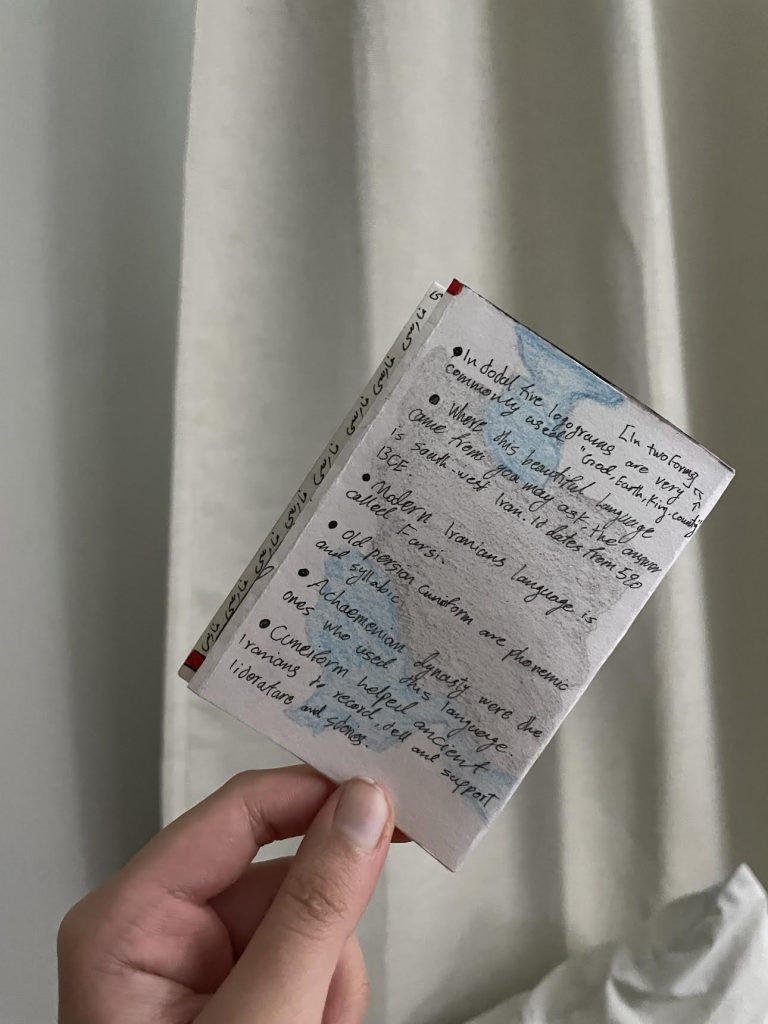 • In total five logograms are very
commonly used "God, Earth, King, country"
[In two forms]
• Where this beautiful language
came from you may ask. the answer
is south-west Iran. it dates from 520
BCE
• Modern Iranians language is
called Farsi.
• Old persian cuneiform are phonemic
and syllabic
• Achaemenian dynasty were the
ones who used this language.
• Cuneiform helped ancient
Iranians to record, tell and support
literature and stories.
فارسی فارسی فارسی فارسی فارسی فارسی فارسی